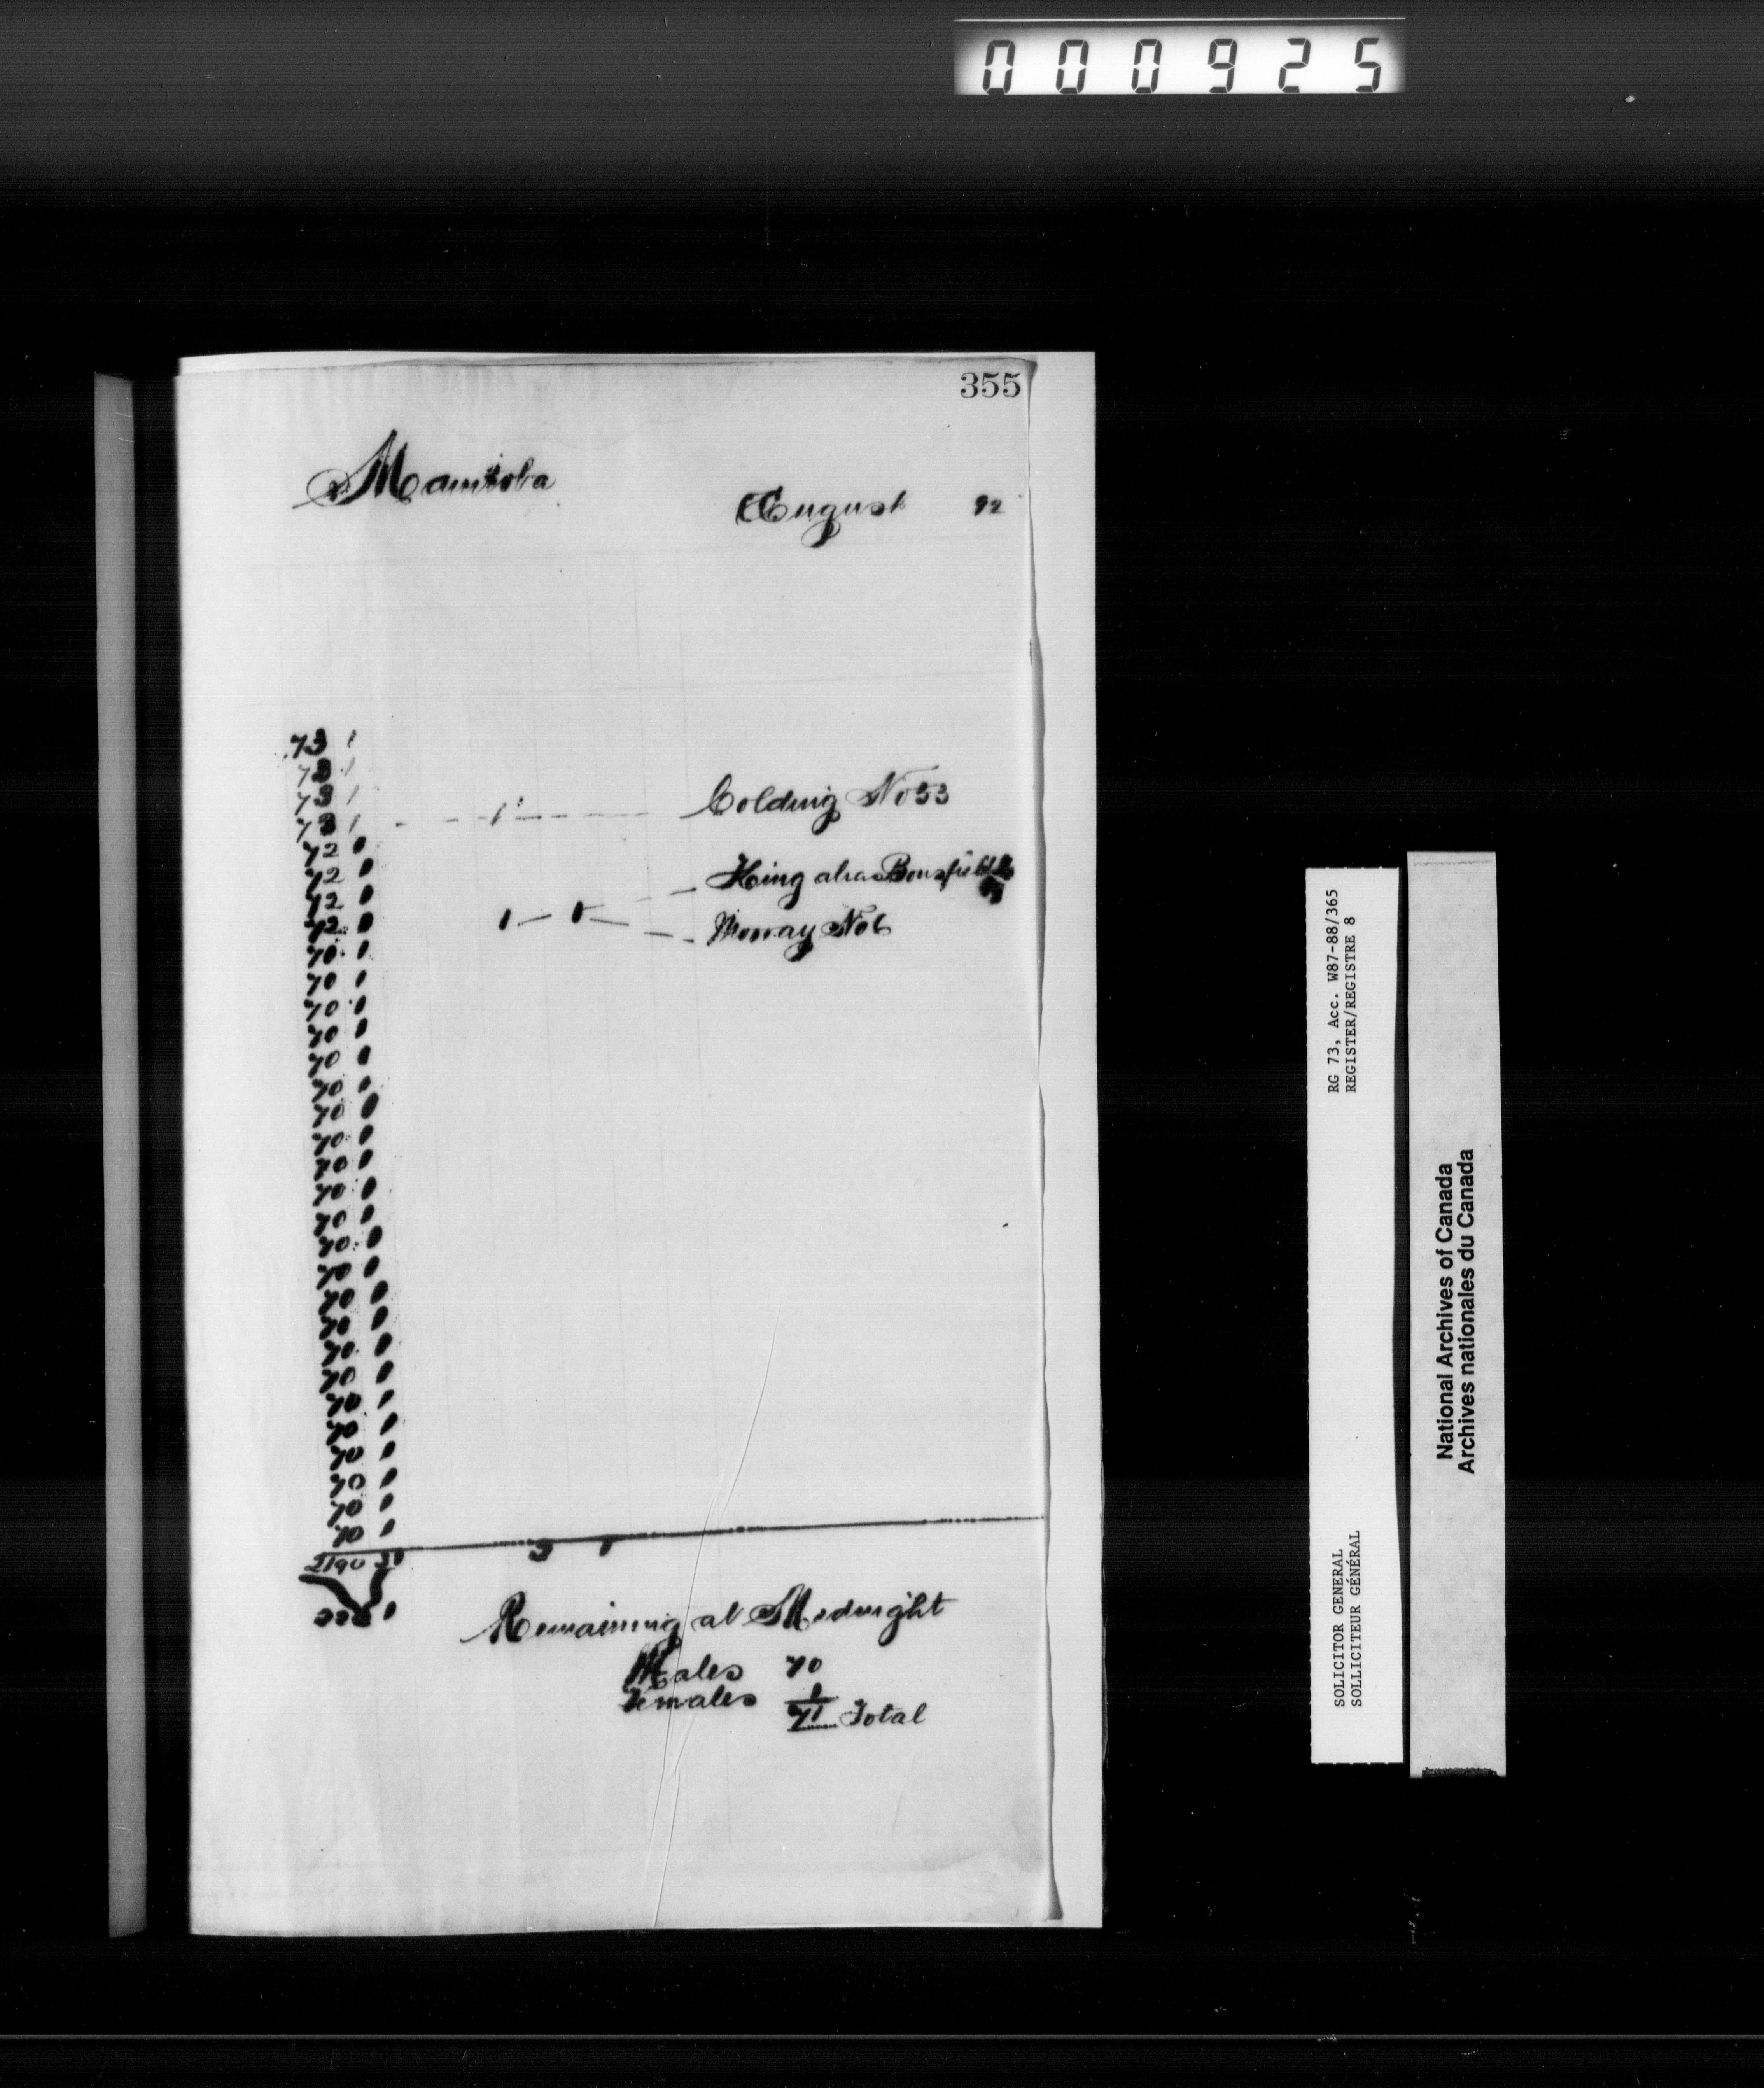 000925
355
Manitoba
August 92
73 1
73 1
73 1
73 1 1 Colding No 53
72 1
72 1 King alias Bonsfield
72 1
72 1 1 1 Moway No 6
70 1
70 1
70 1
70 1
70 1
70 1
70 1
70 1
70 1
70 1
70 1
70 1
70 1
70 1
70 1
70 1
70 1
70 1
70 1
70 1
70 1
70 1
70 1
2190 31 2 1
1
Remaining at Midnight
Males 70
Females 1
71 Total
RG 73, Acc. W87-88/365
REGISTER/REGISTRE 8
SOLICITOR GENERAL
SOLLICITEUR GÉNÉRAL
National Archives of Canada
Archives nationales du Canada